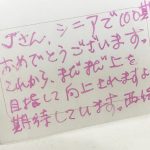 さん、シニアで100期
おめでとうございます。
これから、まだまだ上を
目指して向上されますよ
期待しています。西